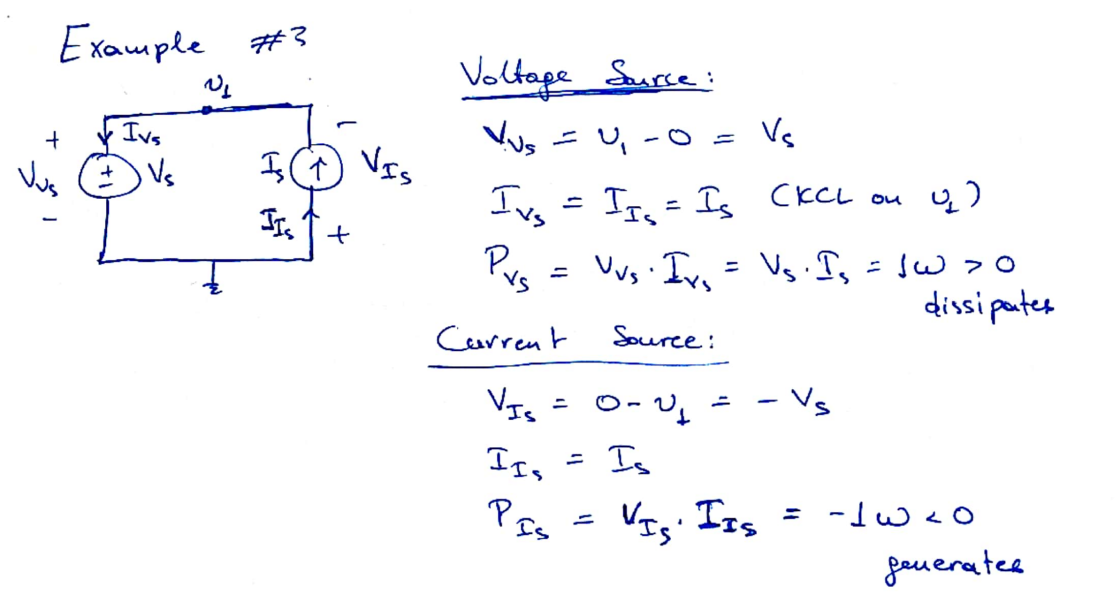 Example #3
u₁
+ I_Vs - 
V_Vs ± V_s I_s ↑ V_Is
- I_Is +
Voltage Source:
V_Vs = u₁ - 0 = V_s
I_Vs = I_Is = I_s (KCL on u₁)
P_Vs = V_Vs · I_Vs = V_s · I_s = 1W > 0
dissipates
Current Source:
V_Is = 0 - u₁ = - V_s
I_Is = I_s
P_Is = V_Is · I_Is = -1W < 0
generates